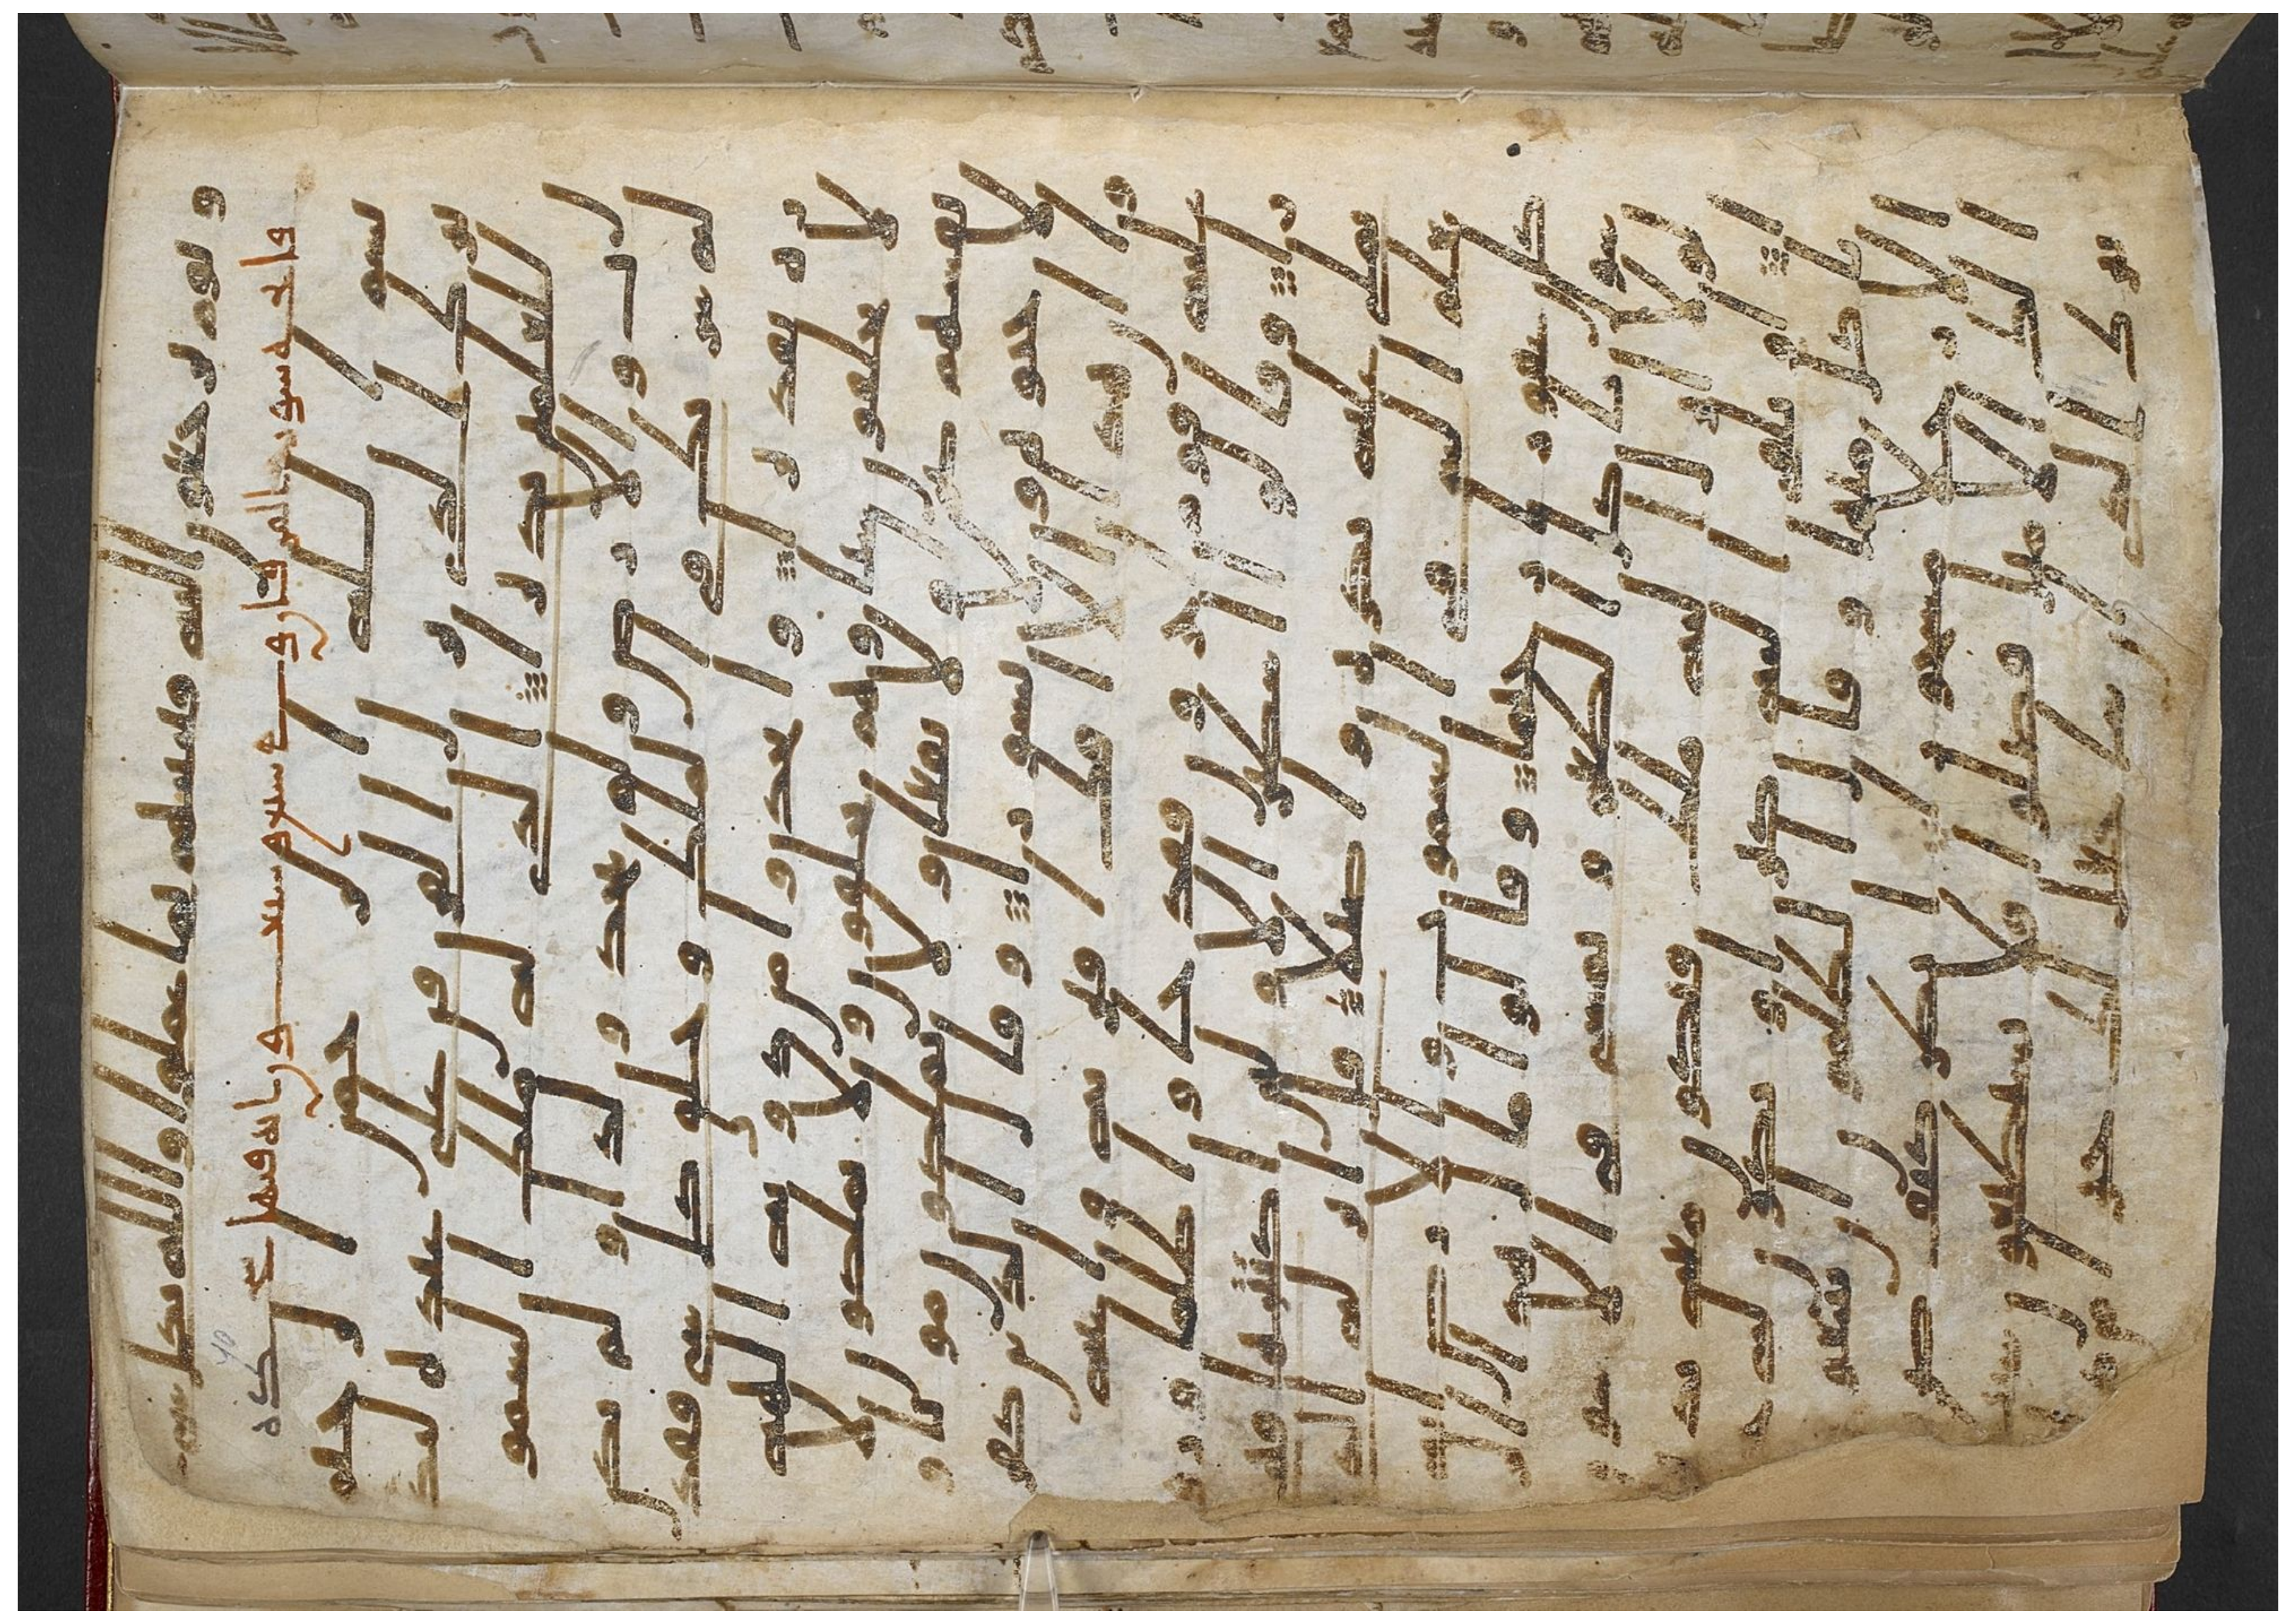 و يوم يرجعون اليه فينبيهم بما عملوا والله بكل شي
فاتحه سوره الفرقان
بسم الله الرحمن الرحيم
تبرك الذي نزل الفرقان على عبده ليكون
للعلمين نذيرا الذي له ملك السموت
و الارض ولم يتخذ ولدا و لم يكن
له شريك في الملك و خلق كل شي فقدر
ه تقديرا و اتخذوا من دونه الهه
لا يخلقون شيا وهم يخلقون ولا يملكون لا
نفسهم ضرا ولا نفعا ولا يملكون موتا و
لا حيوه ولا نشورا و قال الذين كفر
وا ان هذا الا افك افتريه و اعنه
عليه قوم اخرون فقد جاو ظلما و ز
ورا و قالوا اسطير الاولين اكتتبها فهي
تملى عليه بكره و اصيلا قل انزله الذ
ي يعلم السر في السموت و الارض انه كا
ن غفورا رحيما و قالوا مال هذا الر
سول ياكل الطعم و يمشي في الاسو
ق لولا انزل اليه ملك فيكون معه نذ
يرا او يلقى اليه كنز او تكون له جنه
ياكل منها و قال الظلمون ان تتبعون
الا رجلا مسحورا انظر كيف ضر
بوا لك الامثل فضلوا فلا يستطيعون
سبيلا تبرك الذي ان شا جعل لك